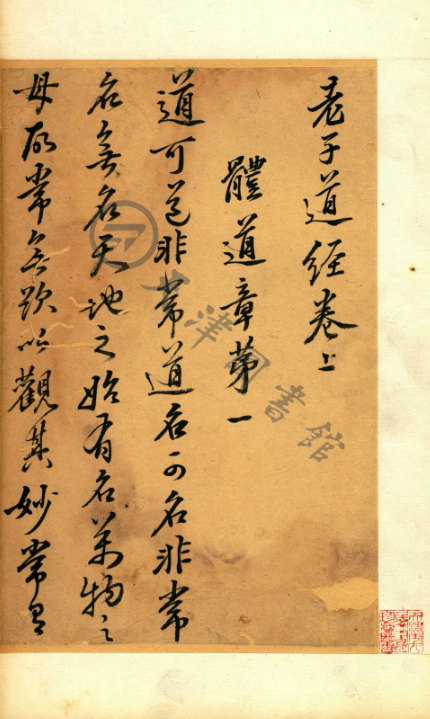 老子道經卷上
體道章第一
道可道非常道名可名非常
名無名天地之始有名萬物之
母故常無欲以觀其妙常有
天津圖書館